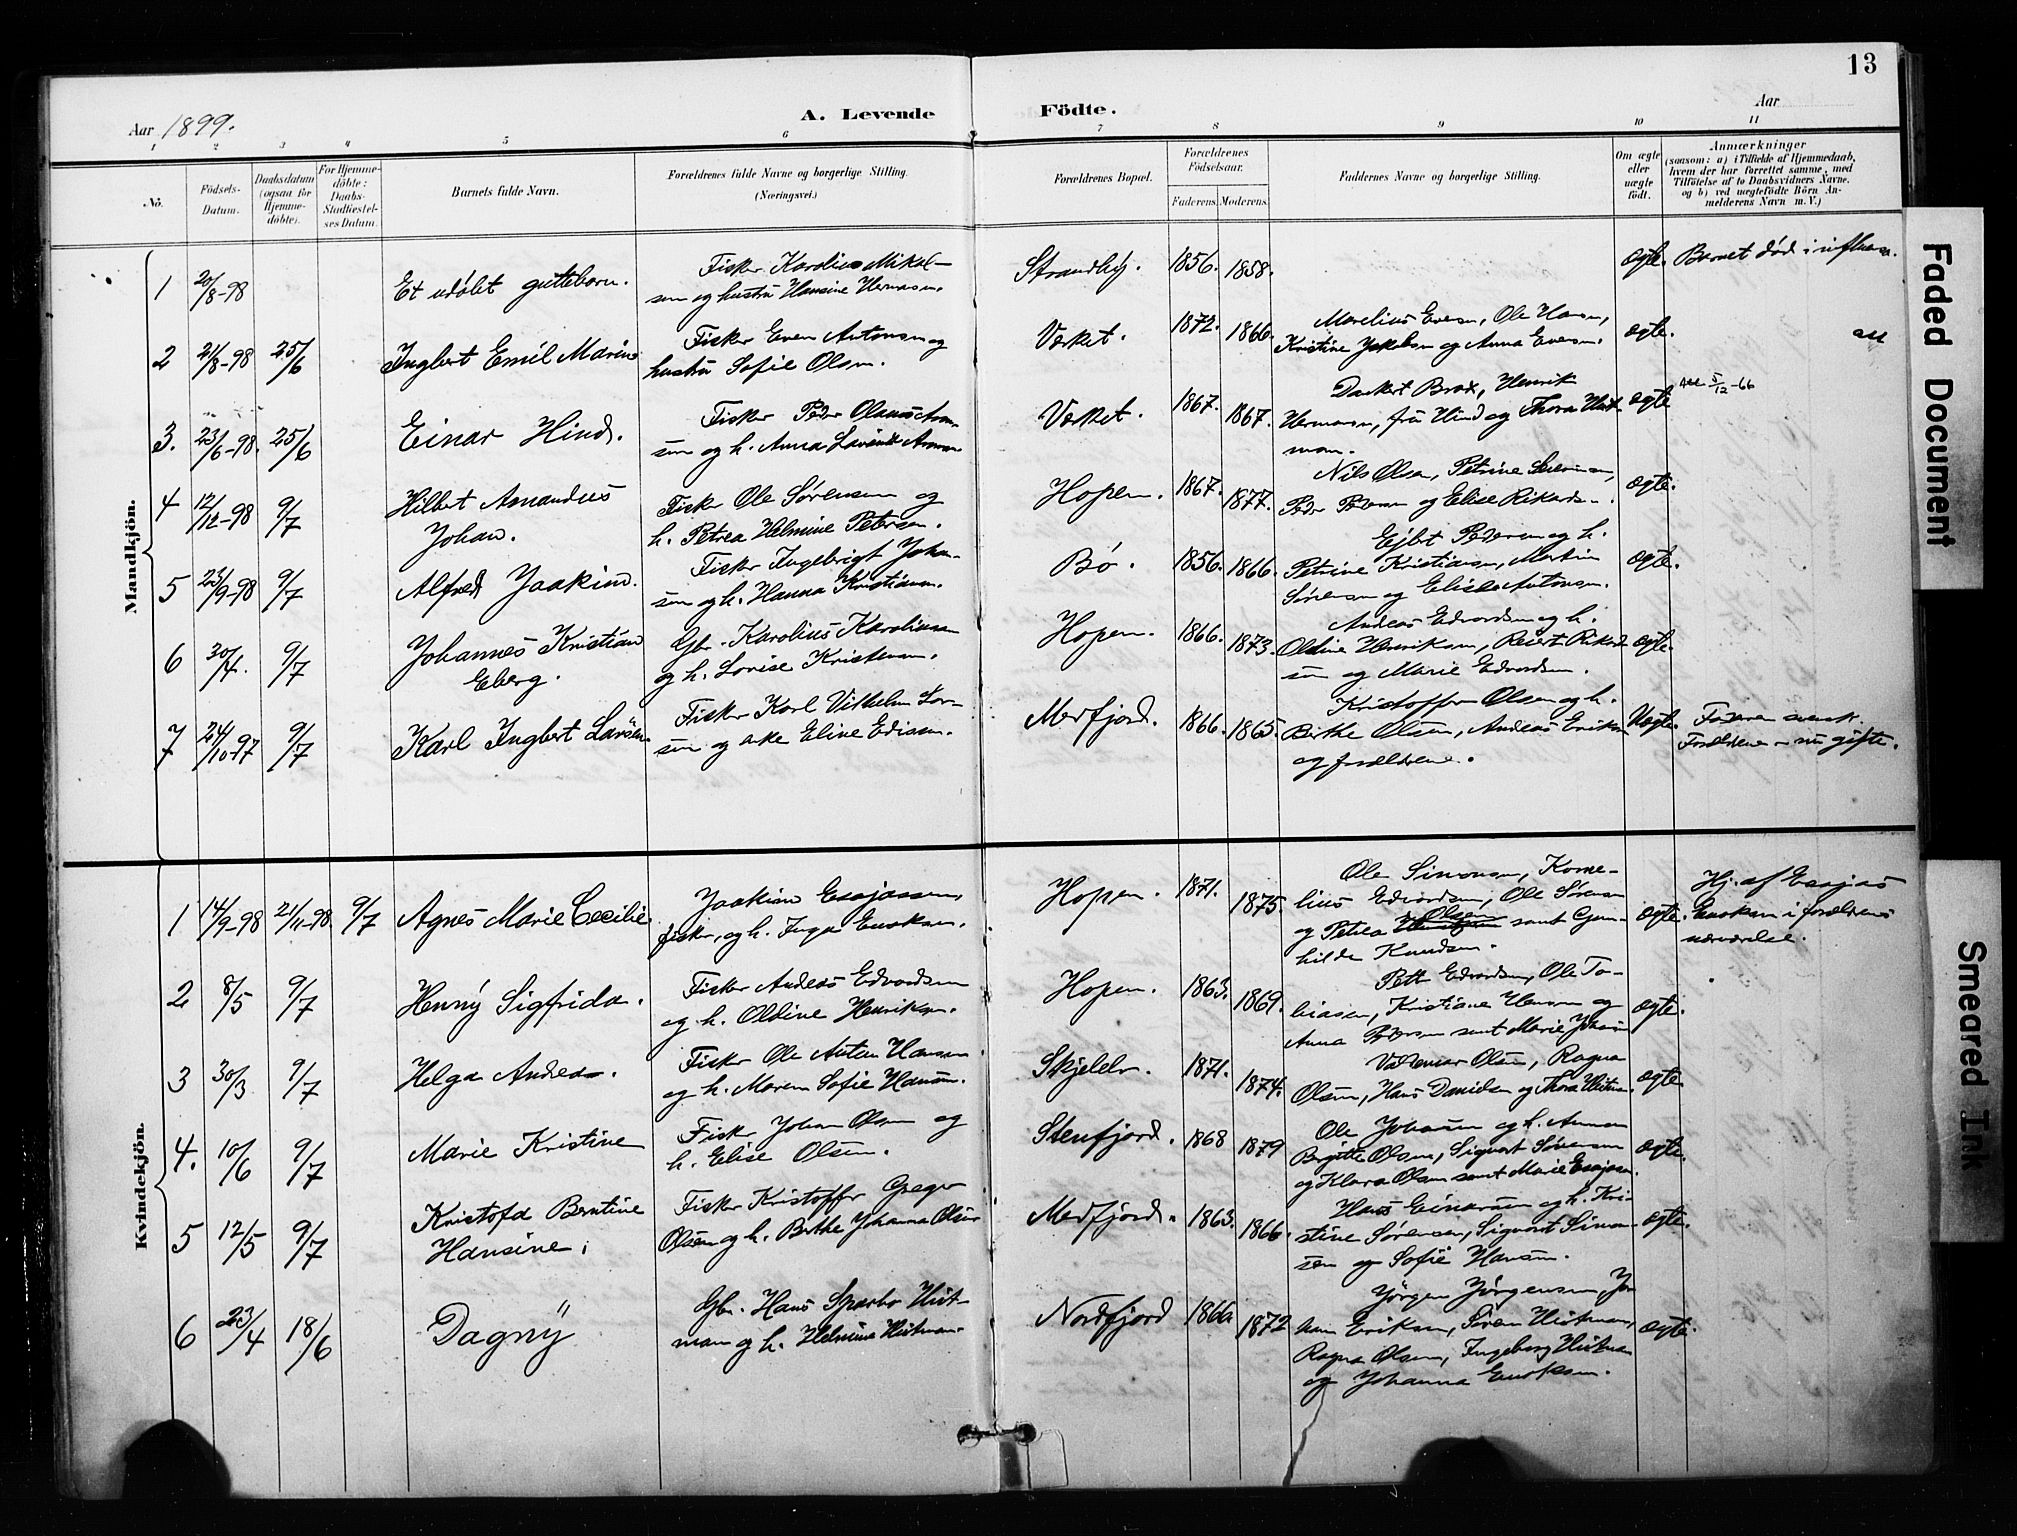 13
Aar 1899.
A. Levende Födte.
Aar
1 2 3 4 5 6 7 8 9 10 11
No.
Födsels-Datum.
Daabsdatum (ogsaa for Hjemme-döbte).
For Hjemme-döbte: Daabs-Stadfæstel-ses Datum.
Barnets fulde Navn.
Forældrenes fulde Navne og borgerlige Stilling. (Næringsvei.)
Forældrenes Bopæl.
Forældrenes Födselsaar.
Faderens. Moderens.
Faddernes Navne og borgerlige Stilling.
Om ægte eller uægte födt.
Anmærkninger
(saasom: a) i Tilfælde af Hjemmedaab,
hvem der har forrettet samme, med
Tilföielse af to Daabsvidners Navne,
og b) ved uægtefödte Börn An-
melderens Navn m. V.)
Mandkjön.
1 20/8-98 Et udöbt guttebarn. Fisker Karolius Mikal-
sen og hustru Hansine Hermansn. Strandby. 1856. 1858. ægte. Barnet död i influen.
2 21/8-98 25/6 Ingbert Emil Marin Fisker Even Antonsen og
hustru Sofie Olsen. Værket. 1872. 1866. Marelius Evensn, Ole Hansn,
Kristine Jakobsn og Anna Evensn. ægte.
3. 23/6-98. 25/6 Einar Hind. Fisker Peder Olaus Aron-
sen og h. Anna Lavinde Aronsn. Værket. 1867. 1867. Dankert Brox, Henrik
Hermansn, fru Hind og Thora Heit-
man. ægte Att 5/12-66
4 12/12-98 9/7 Hilbert Amandus
Johan. Fisker Ole Sørensen og
h. Petrea Helmine Petersen. Hopen. 1867. 1877. Nils Olsen, Petrine
Peder Pedersen og Elise Rikardsn. ægte.
5 23/9-98 9/7 Alfred Joakim. Fisker Ingebrigt Johan-
sen og h. Hanna Kristiansn. Bö. 1856. 1866. Ejbert Pedersen og h.
Petrine Kristiansn, Martin
Sörensen og Elisba Antonsn. ægte.
6 30/4. 9/7 Johannes Kristian
Eberg. Gbr. Karolius Karoliusen
og h. Lovise Kristensn. Hopen. 1866. 1873. Andeas Edvardsen og h.
Oldine Henriksen, Reiert Rikard-
sen og Marie Edvardsn. ægte.
7 24/10-97 9/7 Karl Ingbert Larsen Fisker Karl Vilhelm Lar-
sen og pike Eline Edissen. Mefjord. 1866. 1865. Kristoffer Olsen og h.
Birthe Olsen, Andeas Eriksn
og forældrene. Uægte. Faderen svensk.
Forældrene nu gifte.
Kvindekjön.
1 14/9-98 21/11-98 9/7 Agnes Marie Cecilie Joakim Esajassen,
fisker, og h. Inga Enoksen. Hopen. 1871. 1875. Ole Simonsen, Korne-
lius Edvardsen, Ole Sörensen
og Petrea Olsen samt Gun-
hilde Knudsen. ægte. Hj. af Esajas
Enoksen i forældrens
nærværelse.
2 8/5 9/7 Henny Sigfrida. Fisker Andeas Edvardsen
og h. Oldine Henriksn. Hopen. 1863. 1869. Pett Edvardsen, Ole To-
biasen, Kristiane Hansen og
Anna Pedersen samt Marie Johansn ægte.
3 30/3 9/7 Helga Andrea. Fisker Ole Anton Hansen
og h. Maren Sofie Hansen. Skjelelv. 1871. 1874. Valdemar Olsen, Ragna
Olsen, Hans Danielsen og Thora Heitm. ægte.
4. 10/6 9/7 Marie Kristine Fisker Johan Olsen og
h. Elise Olsen. Stenfjord. 1868 1879 Ole Johansen og h. Anna
Birgitte Olsen, Sigvart Sörensen
og Klara Olsen samt Marie Esajasn. ægte.
5 12/5 9/7 Kristofa Berntine
Hansine. Fisker Kristoffer Greger
Olsen og h. Birthe Johanna Olsen Mefjord. 1863. 1866. Hans Einarsen og h. Kri-
stine Sörensen, Sigvart Simon-
sen og Sofie Hansen. ægte.
6 23/4 18/6 Dagny Gbr. Hans Sparbo Heit-
man og h. Helmina Heitman. Nordfjord 1866 1872 Jörgen Jörgensen, Jo-
han Eriksen, Sören Heitman,
Ragna Olsen, Ingeborg Heitman
og Johanna Enoksen. ægte.
Faded Document
Smeared Ink